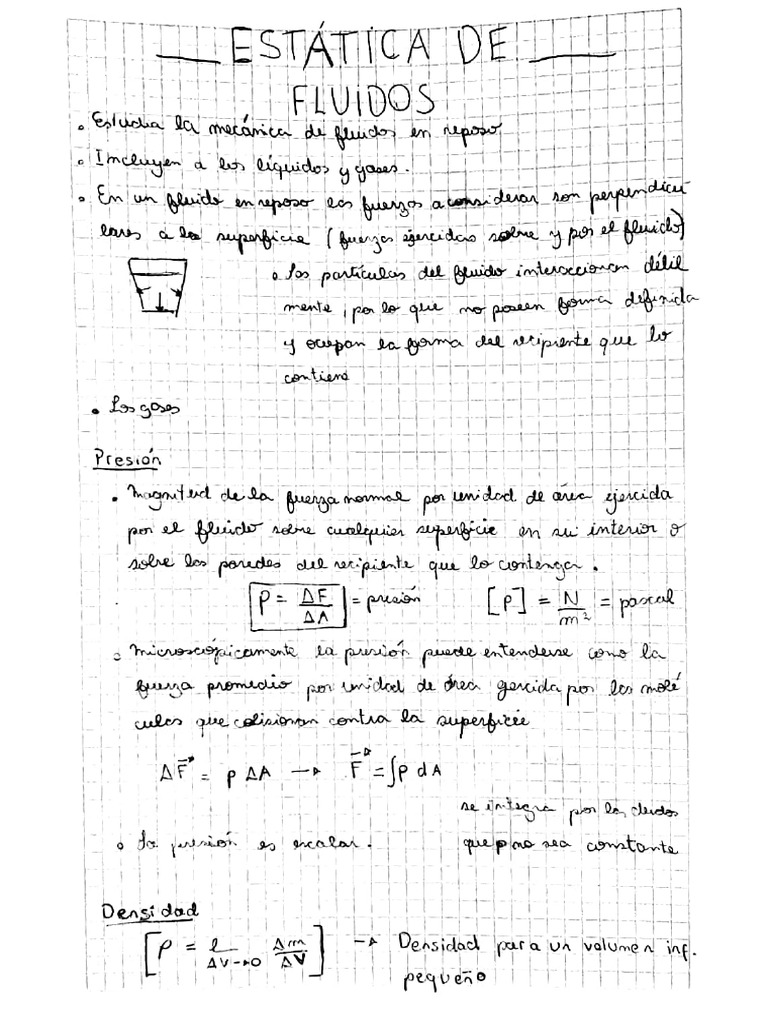 ESTÁTICA DE
FLUIDOS
• Estudia la mecánica de fluidos en reposo
• Incluyen a los líquidos y gases.
• En un fluido en reposo las fuerzas a considerar son perpendicu
lares a la superficie (fuerzas ejercidas sobre y por el fluido)
• Las partículas del fluido interaccionan débil
mente, por lo que no poseen forma definida
y ocupan la forma del recipiente que lo
contiene
• Los gases
Presión
• Magnitud de la fuerza normal por unidad de área ejercida
por el fluido sobre cualquier superficie en su interior o
sobre las paredes del recipiente que lo contenga.
P = ΔF/ΔA = presión [P] = N/m² = pascal
• Microscópicamente la presión puede entenderse como la
fuerza promedio por unidad de área ejercida por las molé
culas que colisionan contra la superficie
ΔF⃗ = p ΔA → F⃗ = ∫p dA
se integra por las dudas
• La presión es escalar. que p no sea constante
Densidad
[ρ = l ΔV→0 Δm/ΔV] → Densidad para un volumen inf.
pequeño